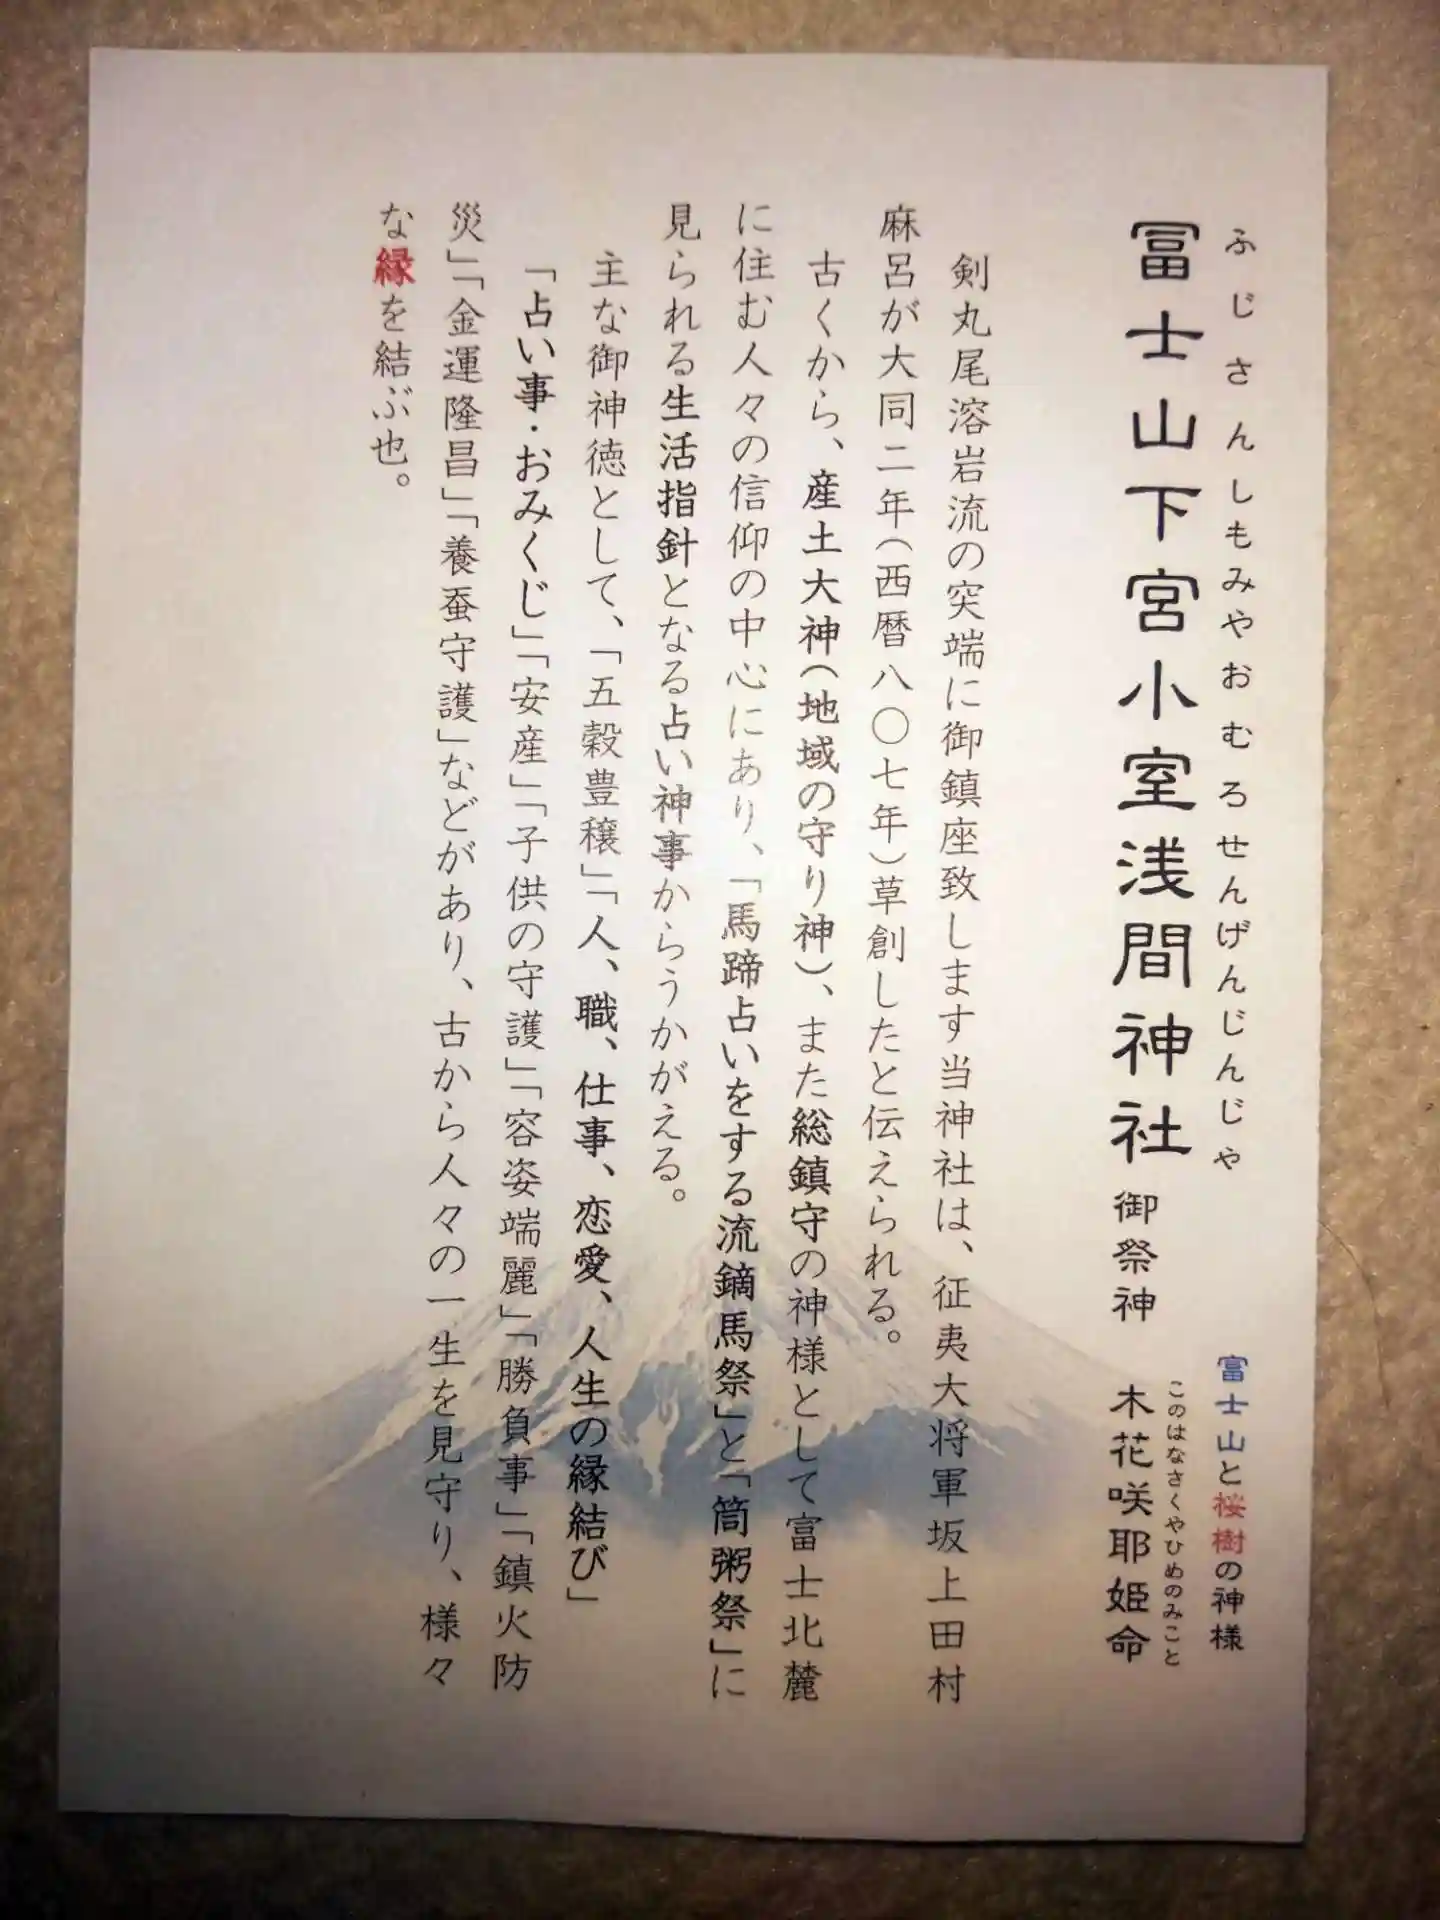 ふじさんしもみやおむろせんげんじんじゃ
冨士山下宮小室浅間神社
富士山と桜樹の神様
御祭神
このはなさくやひめのみこと
木花咲耶姫命
剣丸尾溶岩流の突端に御鎮座致します当神社は、征夷大将軍坂上田村
麻呂が大同二年(西暦八〇七年)草創したと伝えられる。
古くから、産土大神(地域の守り神)、また総鎮守の神様として富士北麓
に住む人々の信仰の中心にあり、「馬蹄占いをする流鏑馬祭」と「筒粥祭」に
見られる生活指針となる占い神事からうかがえる。
主な御神徳として、「五穀豊穣」「人、職、仕事、恋愛、人生の縁結び」
「占い事・おみくじ」「安産」「子供の守護」「容姿端麗」「勝負事」「鎮火防
災」「金運隆昌」「養蚕守護」などがあり、古から人々の一生を見守り、様々
な縁を結ぶ也。